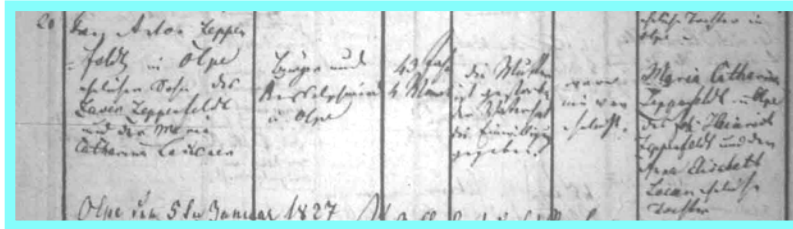 20
Franz Anton Zeppen
feldt in Olpe
ehelicher Sohn des
Xaver Zeppenfeldt
und der Maria
Catharina
Bürger und
Kesselschmied
in Olpe
43 Jahr
4 Monat
die Mutter
ist gestorben
der Vater hat
die Einwilligung
gegeben.
waren
nie ver
ehelicht.
eheliche Tochter in
Olpe
Maria Catharina
Zeppenfeldt in Olpe
des Joh. Heinrich
Zeppenfeldt und der
Anna Elisabeth
eheliche
Tochter
Olpe den 5ten Januar 1827